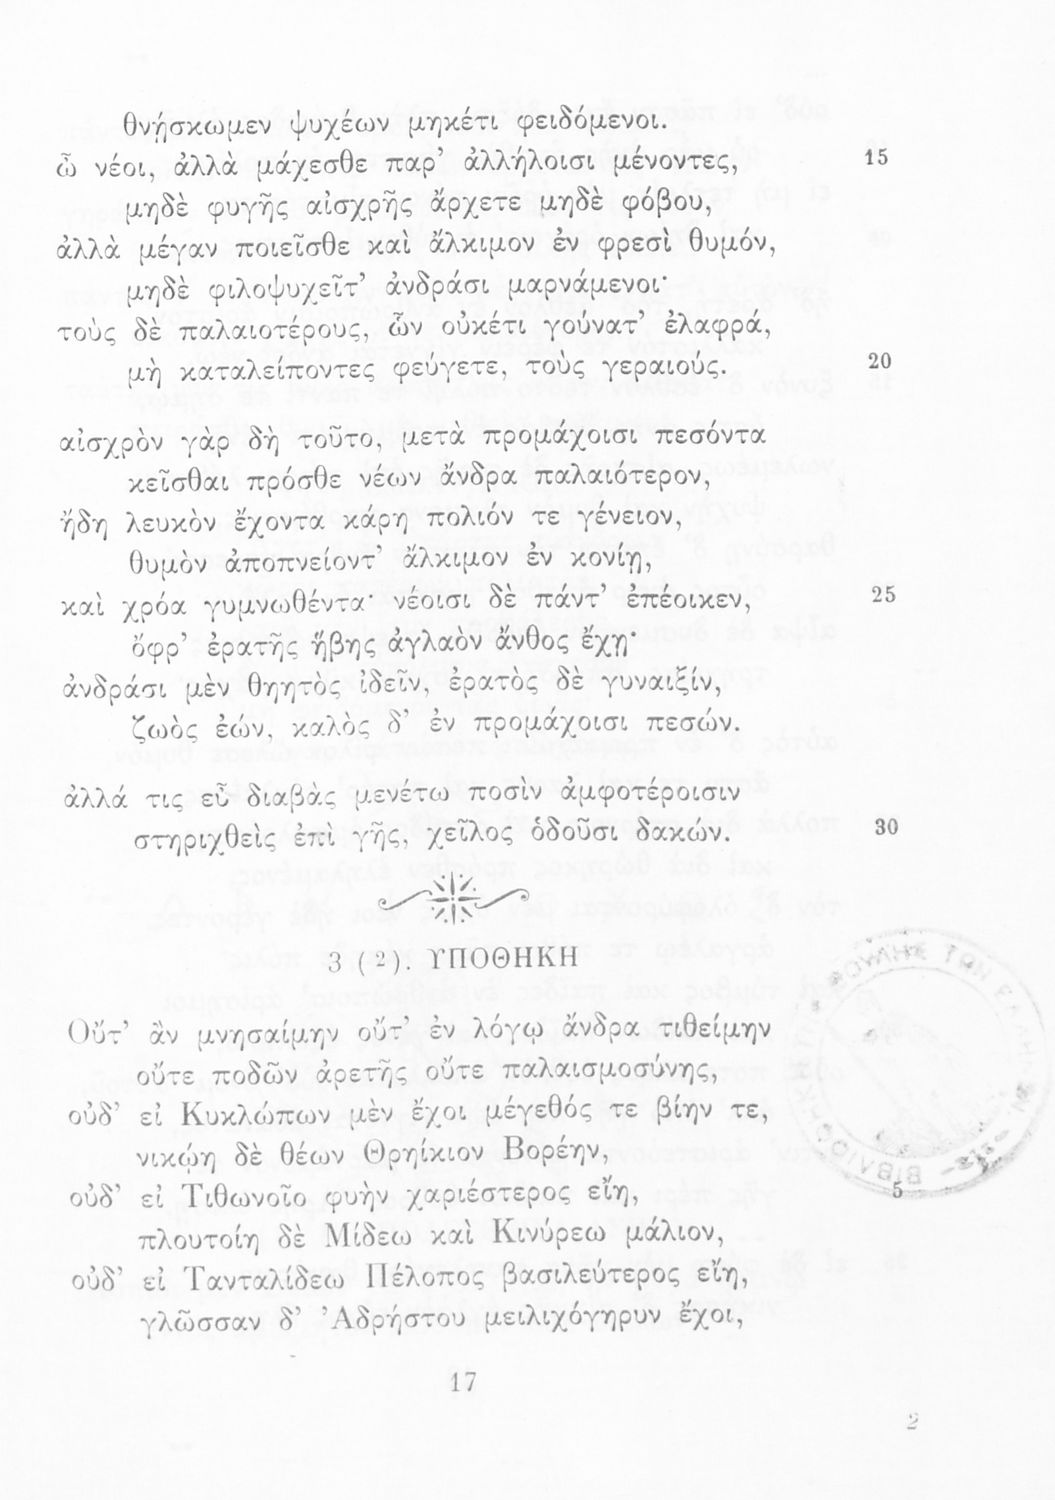 θνῄσκωμεν ψυχέων μηκέτι φειδόμενοι.
ὦ νέοι, ἀλλὰ μάχεσθε παρ’ ἀλλήλοισι μένοντες, 15
μηδὲ φυγῆς αἰσχρῆς ἄρχετε μηδὲ φόβου,
ἀλλὰ μέγαν ποιεῖσθε καὶ ἄλκιμον ἐν φρεσὶ θυμόν,
μηδὲ φιλοψυχεῖτ’ ἀνδράσι μαρνάμενοι·
τοὺς δὲ παλαιοτέρους, ὧν οὐκέτι γούνατ’ ἐλαφρά,
μὴ καταλείποντες φεύγετε, τοὺς γεραιούς. 20
αἰσχρὸν γὰρ δὴ τοῦτο, μετὰ προμάχοισι πεσόντα
κεῖσθαι πρόσθε νέων ἄνδρα παλαιότερον,
ἤδη λευκὸν ἔχοντα κάρη πολιόν τε γένειον,
θυμὸν ἀποπνείοντ’ ἄλκιμον ἐν κονίῃ,
καὶ χρόα γυμνωθέντα· νέοισι δὲ πάντ’ ἐπέοικεν, 25
ὄφρ’ ἐρατῆς ἥβης ἀγλαὸν ἄνθος ἔχῃ·
ἀνδράσι μὲν θηητὸς ἰδεῖν, ἐρατὸς δὲ γυναιξίν,
ζωὸς ἐών, καλὸς δ’ ἐν προμάχοισι πεσών.
ἀλλά τις εὖ διαβὰς μενέτω ποσὶν ἀμφοτέροισιν
στηριχθεὶς ἐπὶ γῆς, χεῖλος ὀδοῦσι δακών. 30
3 (2). ΥΠΟΘΗΚΗ
Οὔτ’ ἂν μνησαίμην οὔτ’ ἐν λόγῳ ἄνδρα τιθείμην
οὔτε ποδῶν ἀρετῆς οὔτε παλαισμοσύνης,
οὐδ’ εἰ Κυκλώπων μὲν ἔχοι μέγεθός τε βίην τε,
νικῴη δὲ θέων Θρηίκιον Βορέην,
οὐδ’ εἰ Τιθωνοῖο φυὴν χαριέστερος εἴη, 5
πλουτοίη δὲ Μίδεω καὶ Κινύρεω μάλιον,
οὐδ’ εἰ Τανταλίδεω Πέλοπος βασιλεύτερος εἴη,
γλῶσσαν δ’ Ἀδρήστου μειλιχόγηρυν ἔχοι,
ΒΙΒΛΙΟΘΗΚΗ ΤΗΣ ΒΟΥΛΗΣ ΤΩΝ ΕΛΛΗΝΩΝ
17
2